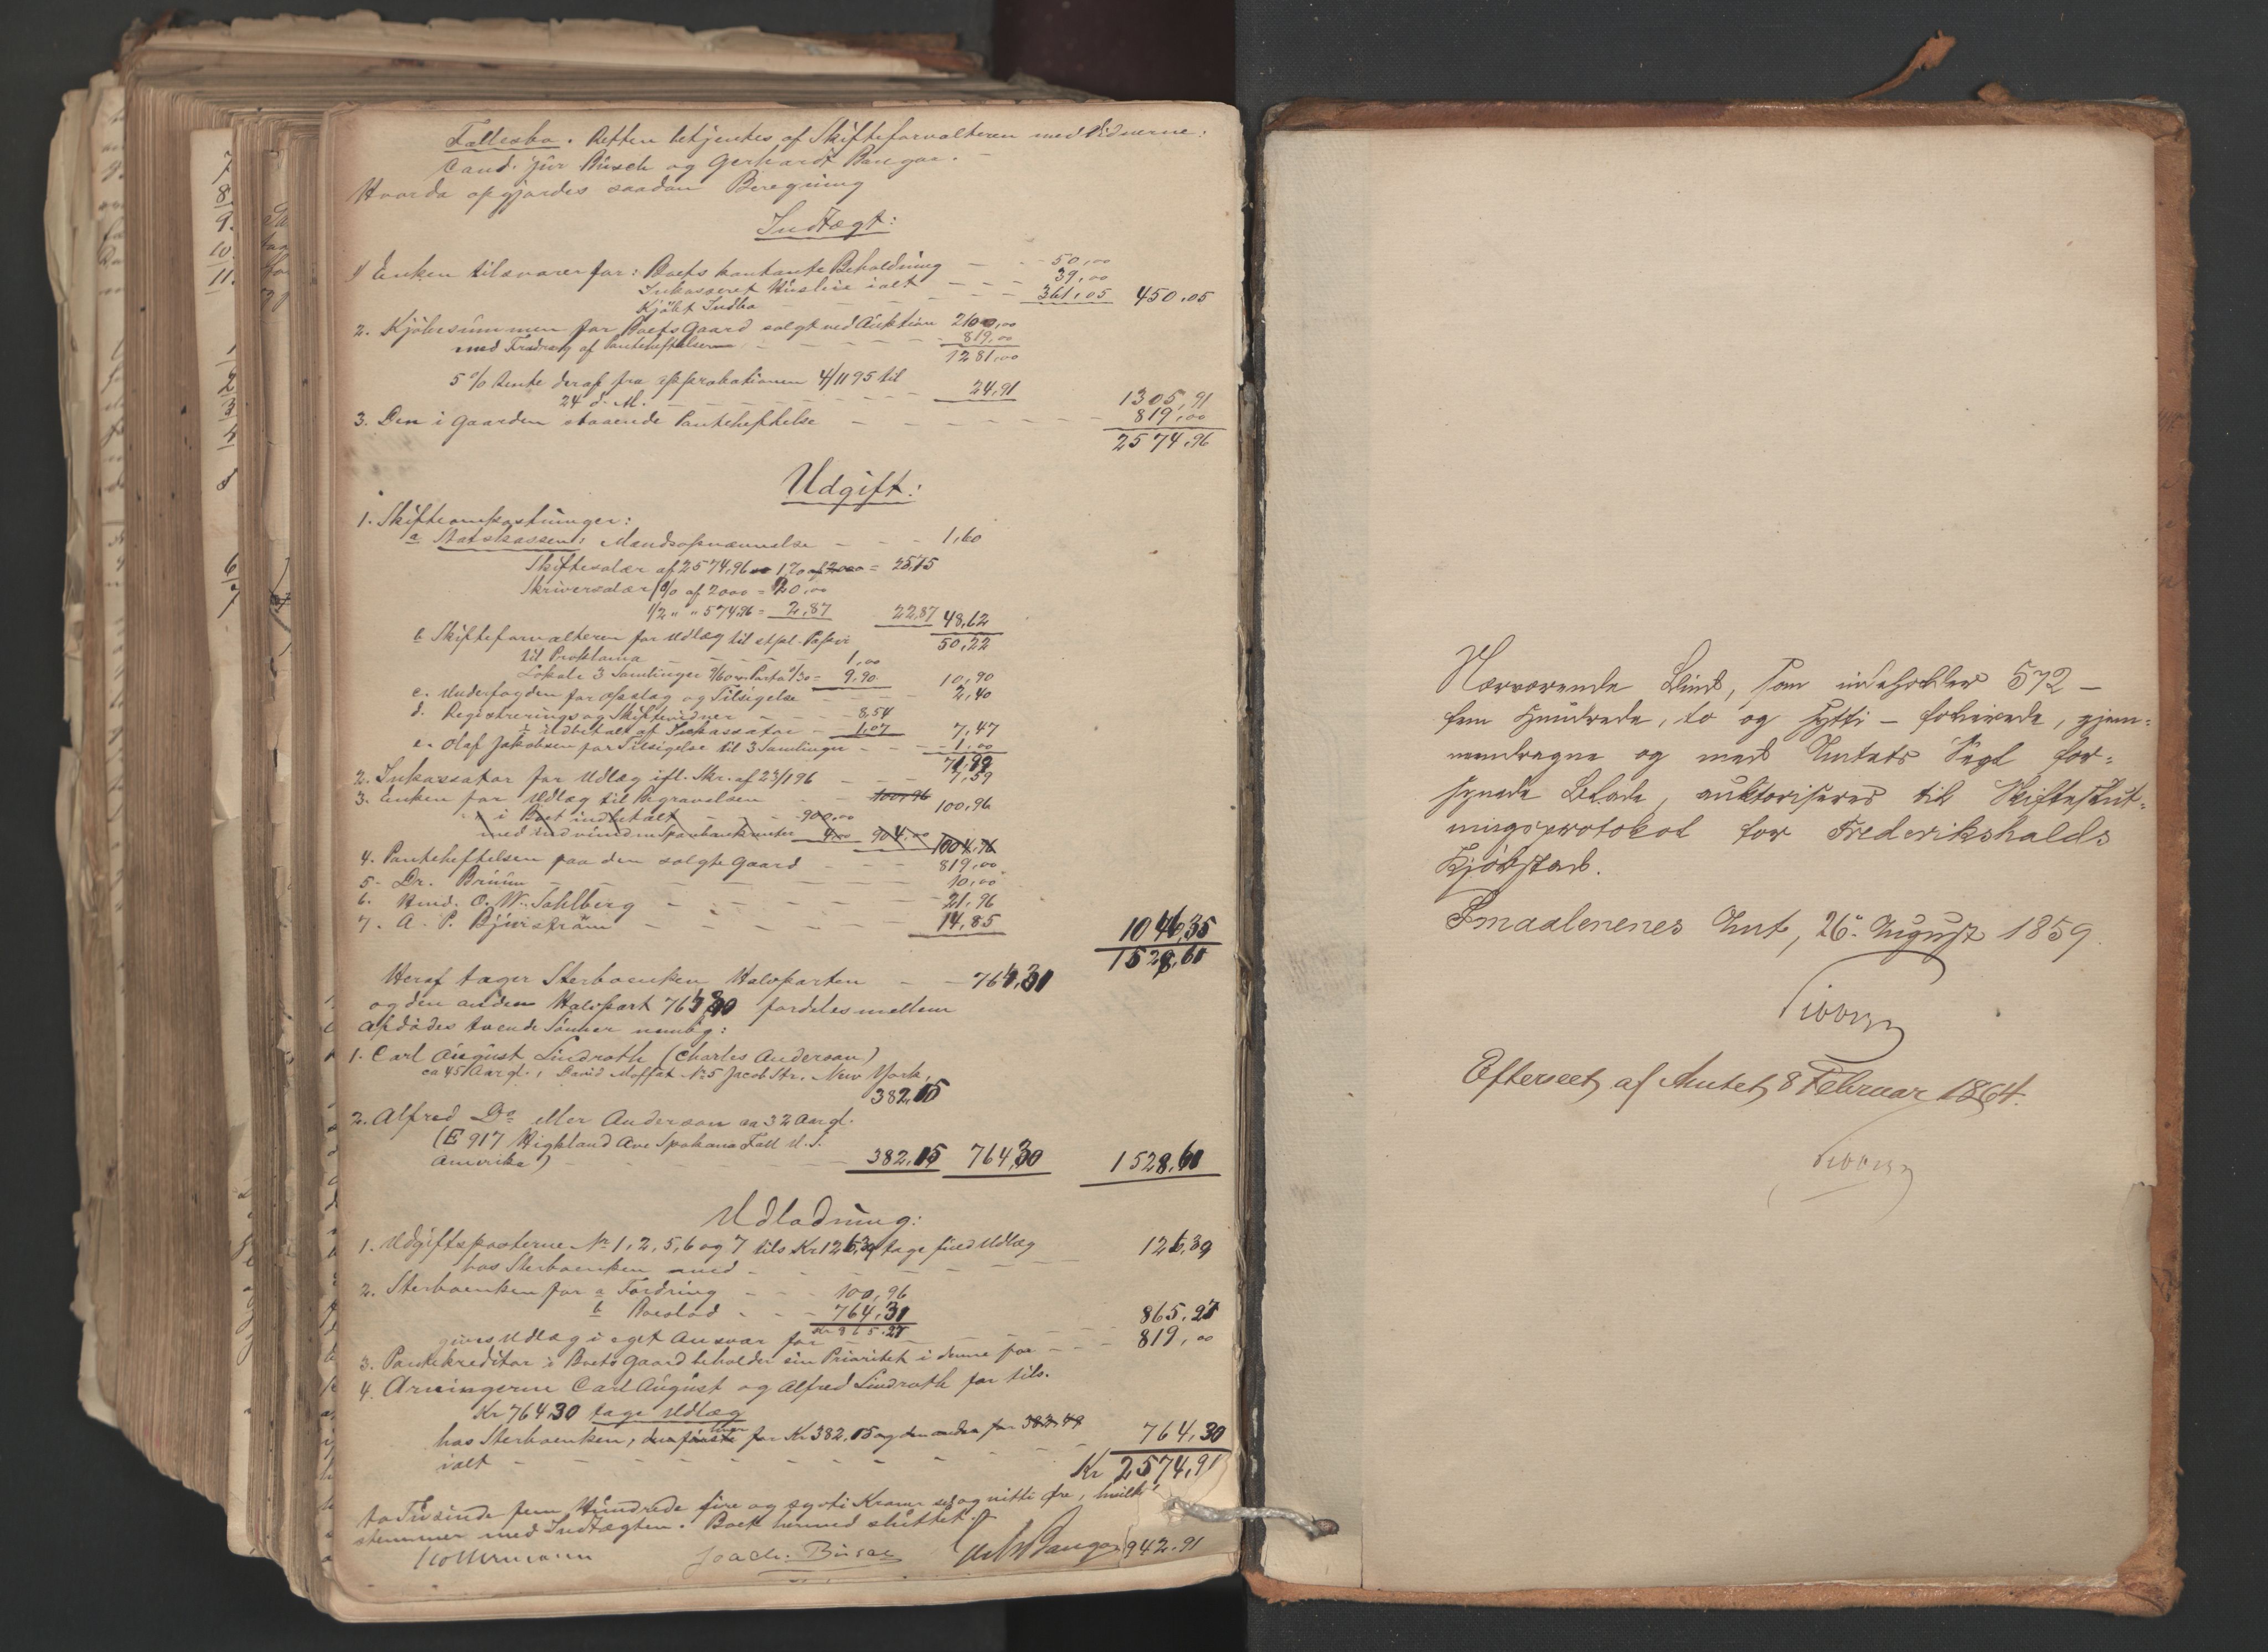 Fællesbo. Retten betjentes af Skifteforvalteren med Vidnerne:
Cand. jur Büsch og Gerhardt Bangar. –
Hvorda opgjordes saadan Beregning
Indtægt:
1/ Enken tilsvarer for: Boets kontante Beholdning – – 50,00
Inkasseret Husleie ialt – – – 39,00
Kjöbt Indbo – – – – 361,05 450,05
2. Kjöbesummen for Boets Gaard solgt ved Auktion 2100,00
med Fradrag af Pantehæftelsen – – – – – 819,00
1281,00
5 % Rente deraf fra Approbationen 4/11 95 til
24 d. M. – – – – – – – – 24,91 1305,91
3. Den i Gaarden staaende Pantehæftelse – – – – – 819,00
2574,96
Udgift:
1. Skifteomkostninger:
a Statskassen: Mandsopnævnelse – – – 1,60
Skiftesalær af 2574,96 1% af 2000 = 25,75
Skriversalær 1% af 2000 = 20,00
1/2 " " 574,96 = 2,87 22,87 48,62
50,22
b Skifteforvalteren for Udlæg til stpl. Papir
til Proklama – – – 1,00
Lokale 3 Samlinger Porto = 9,90 10,90
c. Underfogden for Opslag og Tilsigelse – – – 2,40
d. Registrerings og Skiftevidner – – – 8,54
÷ Udbetalt af Inkassator – 1,07 7,47
e. Olaf Jakobsen for Tilsigelse til 3 Samlinger – – – 1,00
71,99
2. Inkassator for Udlæg ifl. Skr. af 23/1 96 – – – 7,59
3. Enken for Udlæg til Begravelsen – – 100,96 100,96
i Boet indbetalt – – 900,00
med indvundne Sparebankrenter 4,00 904,00 1004,96
4. Pantehæftelsen paa den solgte Gaard – – – 819,00
5. Dr. Bruun – – – – – 10,00
6. Hmd. O. W. Sahlberg – – – – – 21,96
7. A. P. Bjurström – – – – – 14,85 1046,35
1528,61
Heraf tager Sterboenken Halvparten – – 764,31
og den anden Halvpart 764,30 fordeles mellem
afdödes tvende Sönner nemlig:
1. Carl August Lindroth (Charles Anderson)
ca 45 Aar gl., David Moffat No 5 Jacob Str. New York,
382,15
2. Alfred Do eller Anderson ca 32 Aar gl.
(E 917 Highland Ave Spokane Fall U.S.
Amerika) – – – – – 382,15 764,30 1528,61
Udlodning:
1. Udgiftsposterne No 1, 2, 5, 6 og 7 tils Kr 126,39 tage fuld Udlæg
hos Sterboenken med – – – – – – – – 126,39
2. Sterboenken for a Fordring – – – 100,96
b Boeslod – – – 764,31
Kr 865,27
gives Udlæg i eget Ansvar for – – – – – 865,27
3. Pantekreditor i Boets Gaard beholder sin Prioritet i denne for – – – 819,00
4. Arvingerne Carl August og Alfred Lindroth for tils.
Kr 764,30 tage Udlæg
hos Sterboenken, den förste hver for Kr 382,15 og den anden for 382,49 764,30
ialt – – – – – – – – – Kr 2574,91
to Tusinde fem Hundrede fire og sytti Kroner og nitti Öre, hvilket
stemmer med Indtægten. Boet hermed sluttet.
Joach. Büsch Gerh Bangar 1942.91
Nærværende Bind, som indeholder 572 –
fem Hundrede, to og sytti – folierede, gjen=
nemdragne og med Amtets Segl for=
synede Blade, auktoriseres til Skifteslut=
ningsprotokol for Frederikshalds
Kjöbstad.
Smaalenenes Amt, 26. August 1859.
Efterseet af Amtet 8 Februar 1864.
7
8.
9.
10.
11.